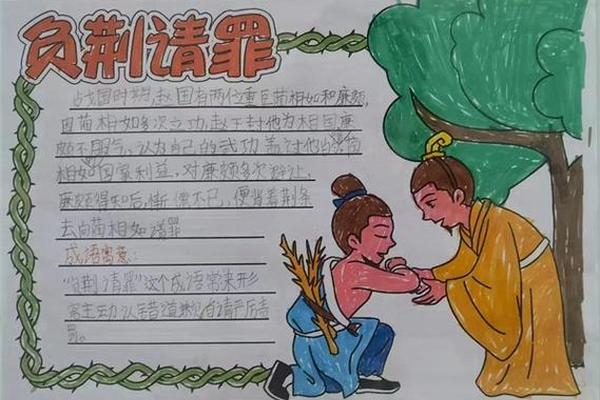 负荆请罪
战国时期,赵国有两位重臣蔺相如和廉颇,
因蔺相如多次立功,赵王封他为相国,廉
颇不服气,认为自己的武功盖过他,
相如国家利益,对廉颇多次避让,
廉颇得知后,惭愧不已,便背着荆条
去向蔺相如请罪
成语寓意:
“负荆请罪”这个成语常来形
容主动认错道歉,自请严厉责
罚。